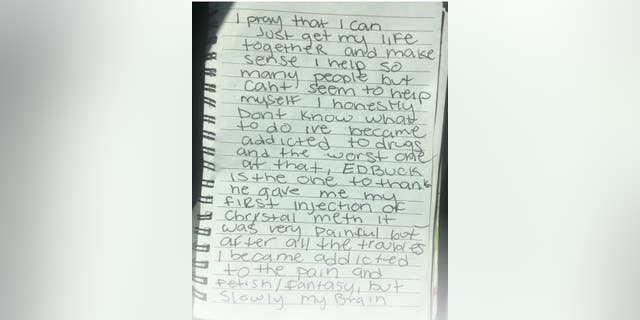 I pray that I can
Just get my life
together and make
sense I help so
many people but
cant seem to help
myself I honestly
Dont know what
to do ive became
addicted to drugs
and the worst one
at that, EDBUCK
is the one to thank
he gave me my
first injection of
Chrystal meth it
was very painful but
after all the troubles
I became addicted
to the pain and
fetish/fantasy, but
slowly my Brain